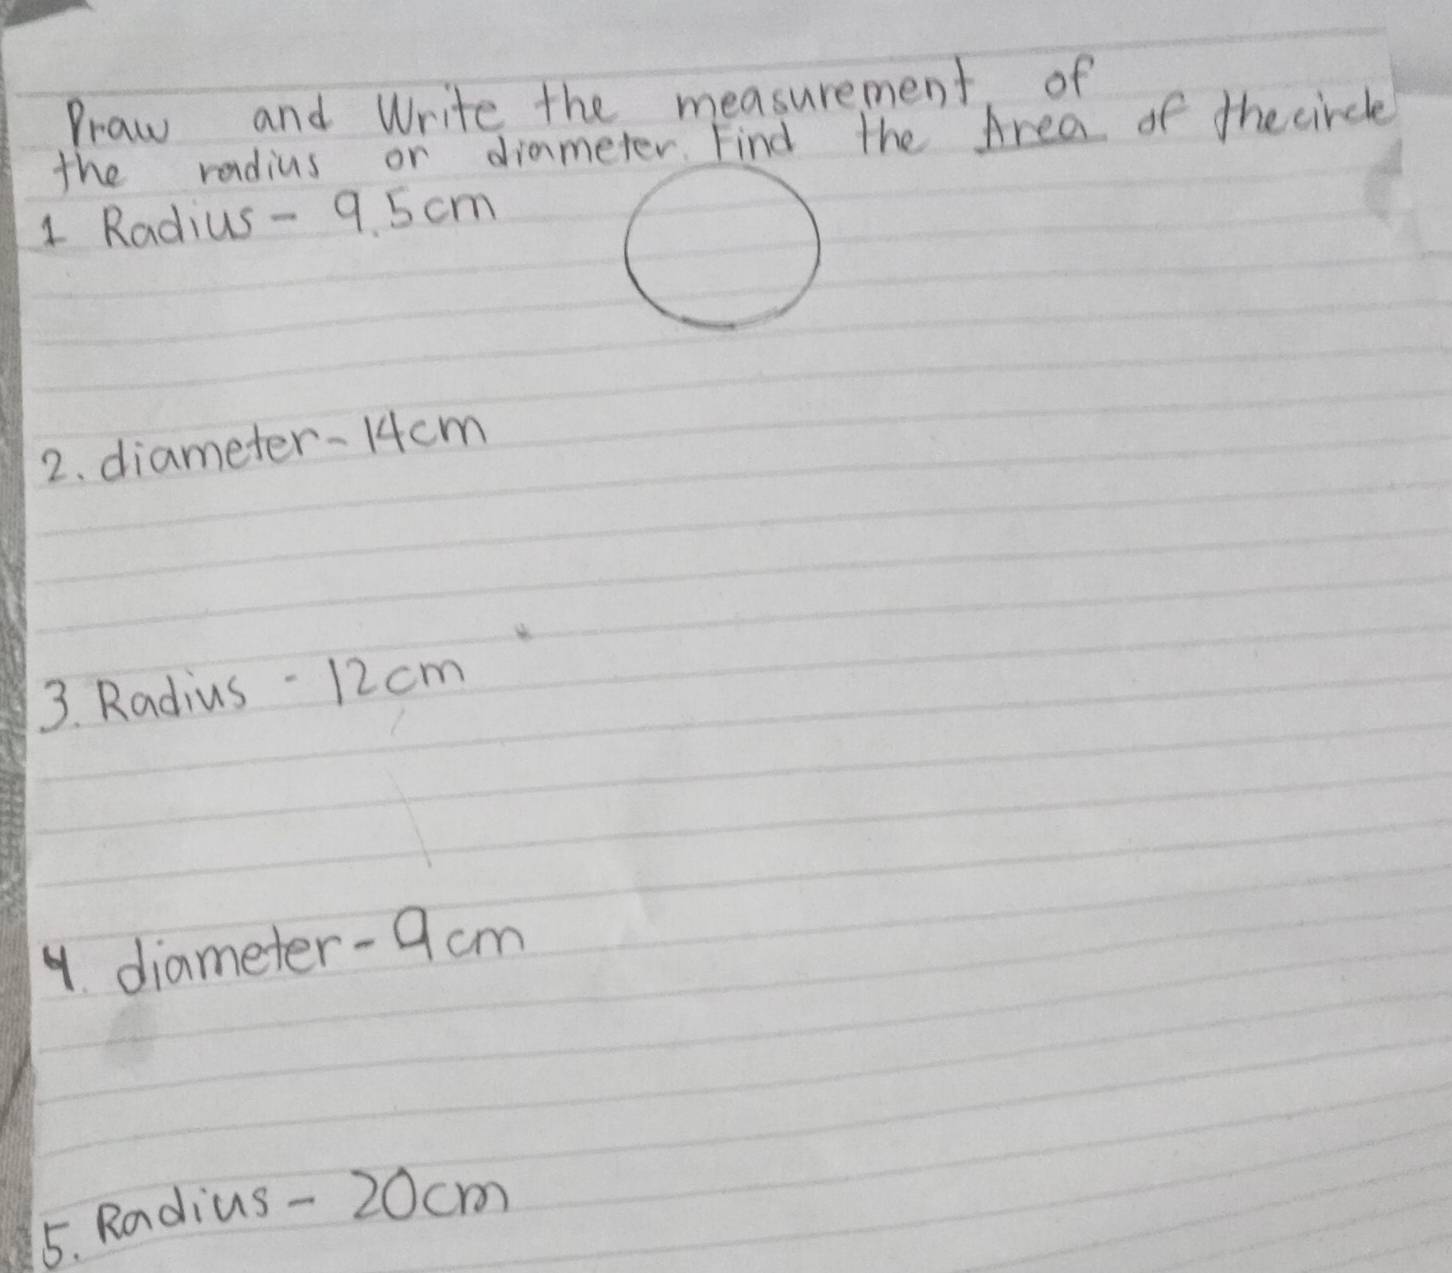 Draw and Write the measurement of
the radius or diameter. Find the Area of the circle
1 Radius - 9.5cm
2. diameter - 14cm
3. Radius - 12cm
4. diameter - 9cm
5. Radius - 20cm